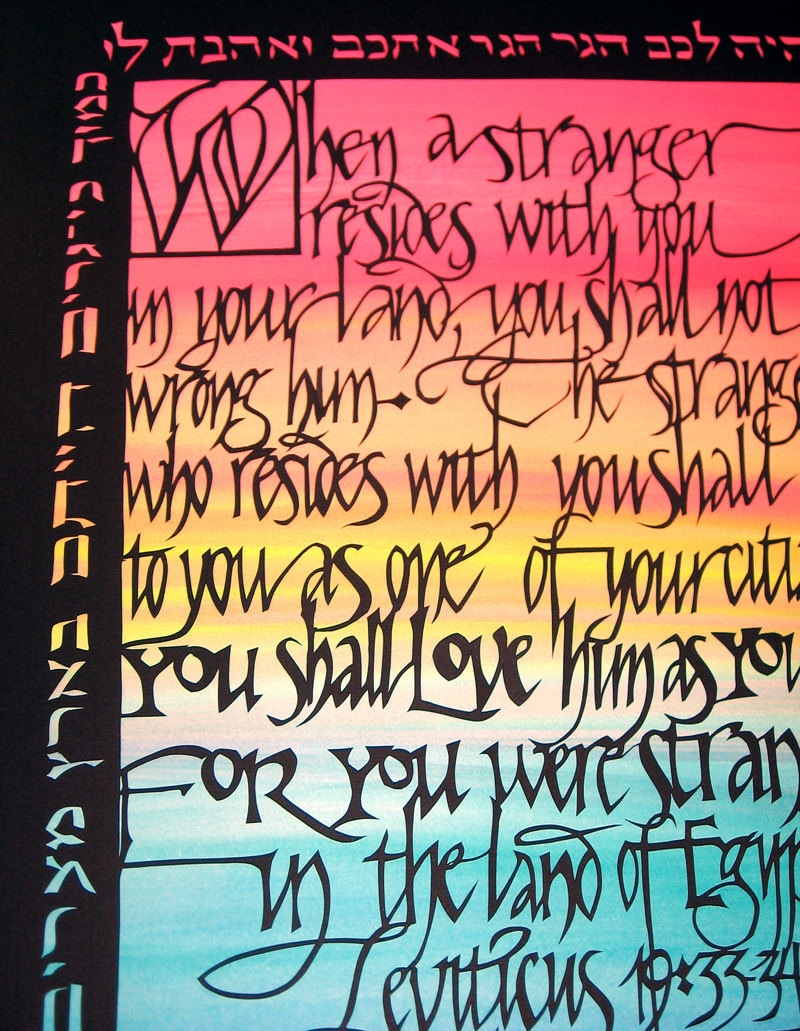 היה לכם הגר הגר אתכם ואהבת לו
כמוך כי גרים הייתם בארץ מצרים
When a stranger
resides with you
in your land, you shall not
wrong him. The strang
who resides with you shall
to you as one of your citi
You shall Love him as You
For You were stran
in the land of Egyp
Leviticus 19:33-34